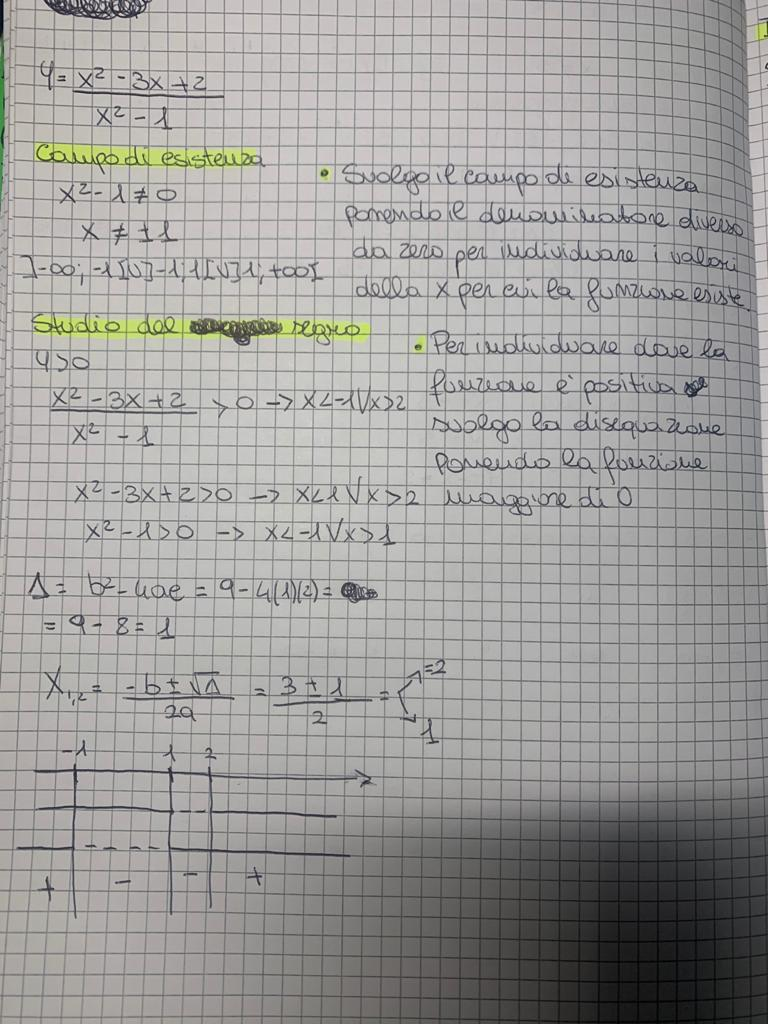 y = x² - 3x + 2
x² - 1
Campo di esistenza
x² - 1 ≠ 0
x ≠ ±1
]-∞; -1[U]-1; 1[U]1; +∞[
• Svolgo il campo di esistenza
ponendo il denominatore diverso
da zero per individuare i valori
della x per cui la funzione esiste.
Studio del segno
y>0
x² - 3x + 2 > 0 -> x<-1Vx>2
x² - 1
x² - 3x + 2 > 0 -> x<1Vx>2
x² - 1 > 0 -> x<-1Vx>1
• Per individuare dove la
funzione è positiva
svolgo la disequazione
ponendo la funzione
maggiore di 0
Δ = b² - 4ac = 9 - 4(1)(2) =
= 9 - 8 = 1
X₁,₂ = -b ± √Δ = 3 ± 1 = =2
2a 2 1
-1 1 2
+ - - +